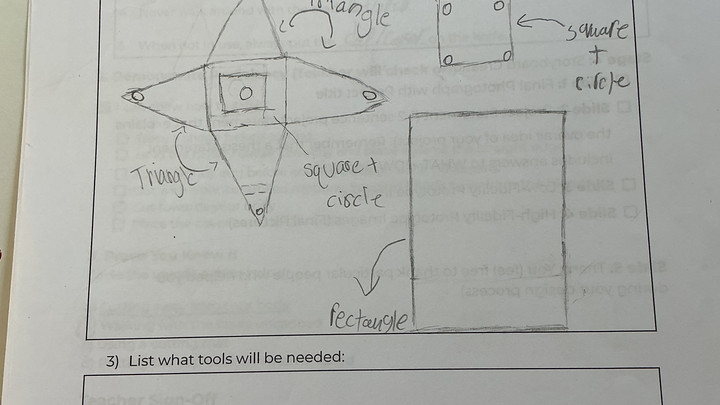 Triangle
square
+
circle
square +
circle
Triangle
Rectangle
3) List what tools will be needed: